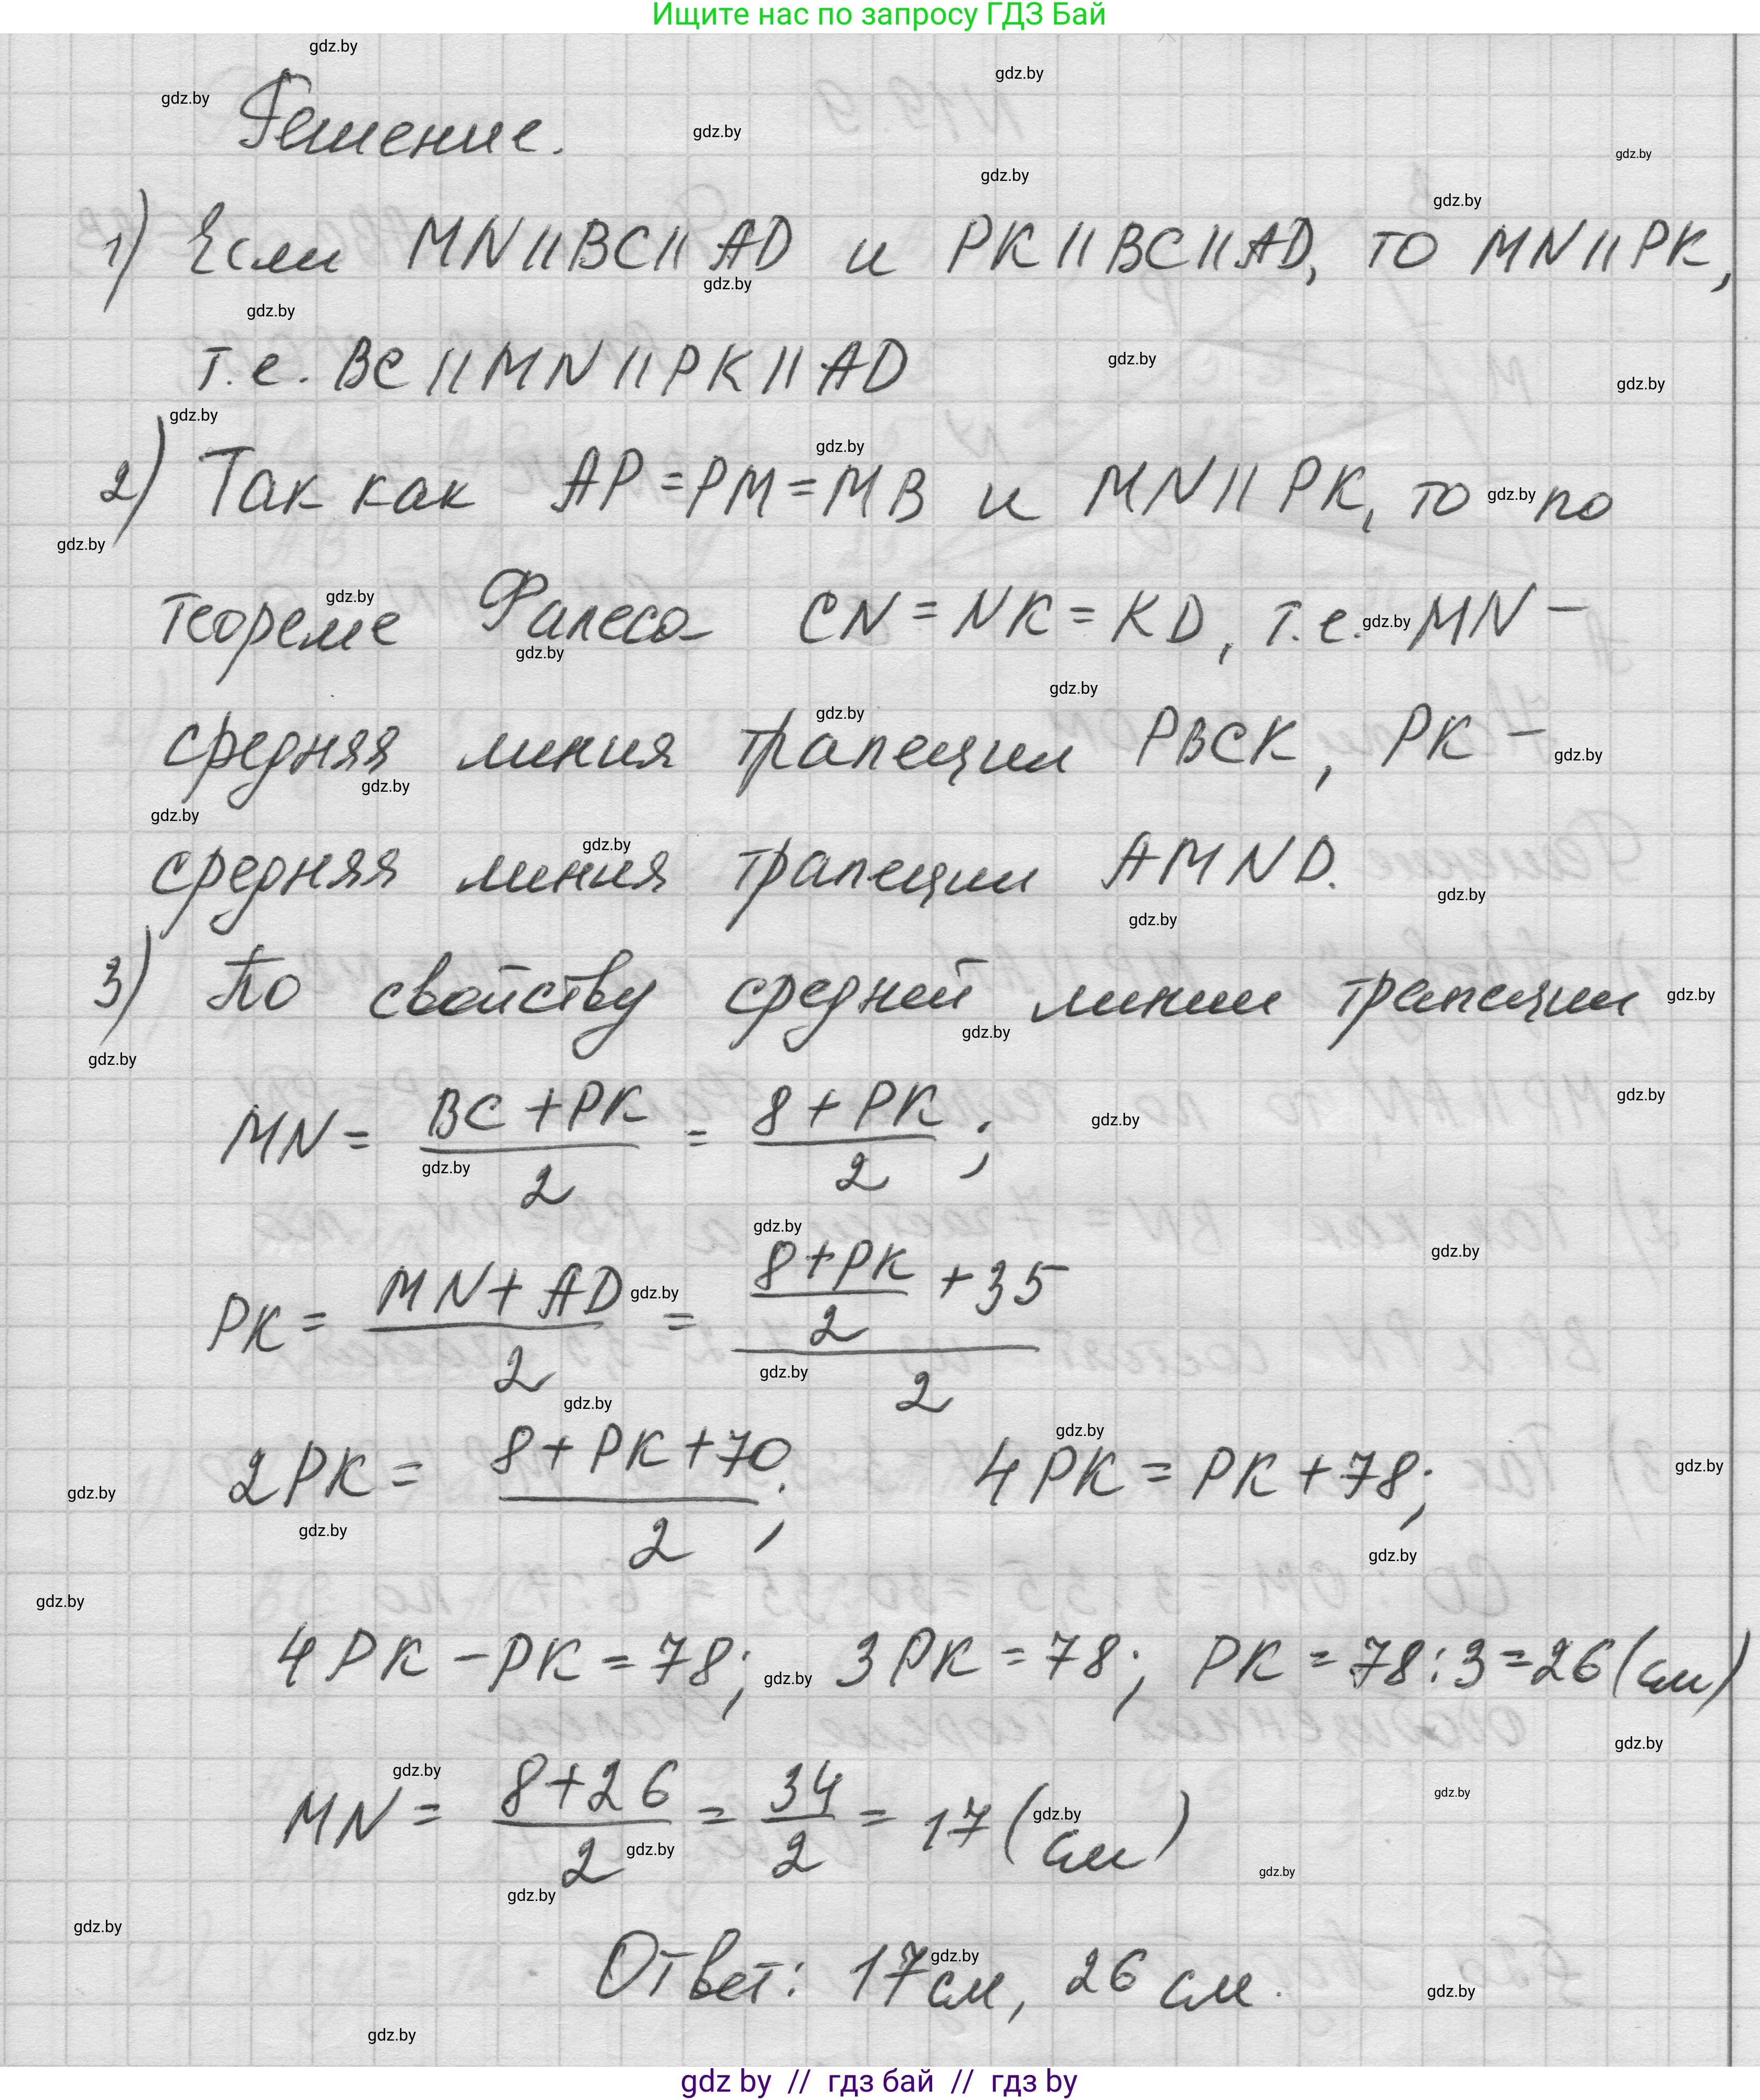 Ищите нас по запросу ГДЗ Бай
Решение.
1) Если MN || BC || AD и PK || BC || AD, то MN || PK,
т.е. BC || MN || PK || AD
2) Так как AP = PM = MB и MN || PK, то по
теореме Фалеса CN = NK = KD, т.е. MN –
средняя линия трапеции PBCK, PK –
средняя линия трапеции AMND.
3) По свойству средней линии трапеции
MN = (BC + PK)/2 = (8 + PK)/2;
PK = (MN + AD)/2 = ((8 + PK)/2 + 35)/2
2PK = (8 + PK + 70)/2; 4PK = PK + 78;
4PK – PK = 78; 3PK = 78; PK = 78 : 3 = 26 (см)
MN = (8 + 26)/2 = 34/2 = 17 (см)
Ответ: 17 см, 26 см.
gdz by // гдз бай // гдз by